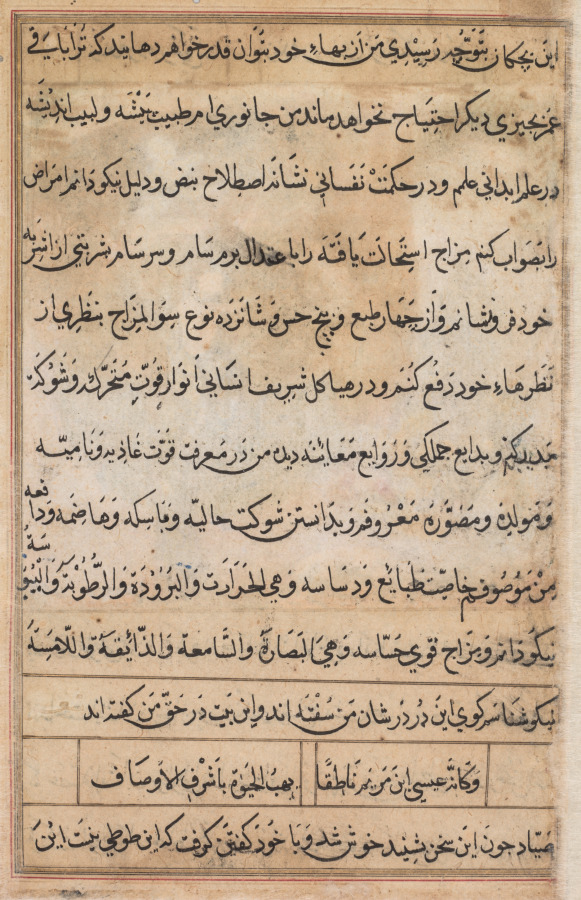 این بچکان بتو چه رسیدی من از بهاء خود بتو آن قدر خواهم دهانید که ترا باقی
عمر بچیزی دیگر احتیاج نخواهد ماند من جانوری ام طبیب پیشه و لبیب اندیشه
در علم ابدانی علم و در حکمت نفسانی نشانه اصطلاح نبض و دلیل نیکو دانم امراض
را بصواب کنم مزاج استحالت یافته را باعتدال برم سام و سرسام بشربتی از اشربه
خود فرو نشانم و از چهار طبع و پنج حس و شانزده نوع سوالمزاج بنظری از
نظرهاء خود دفع کنم و در هیاکل شریف انسانی انوار قوت متحرک و شوکت
مدبر کنم و بدایع جملکی و روایع معاینه دیده من در معرفت قوت غاذیه و نامیه
و مولده و مصوره معروفم و بدانستن شوکت جالیه و ماسکه و هاضمه و دافعه
من موصوفم خاصیت طبایع و دساسه و هی الحرارت و البرودة و الرطوبة و الیبوسة
نیکو دانم و مزاج قوی حساسه و هی الباصرة و السامعة و الذائقة و اللامسة
نیکو شناسم کوی این در در شان من سفته اند و این بیت در حق من کفته اند
و کانه عیسی ابن مریم ناطقا یهب الحیوة باشرف الاوصاف
صیاد چون این سخن بشنید خوش شد و با خود کفتن کرفت که این طوطی نیست این